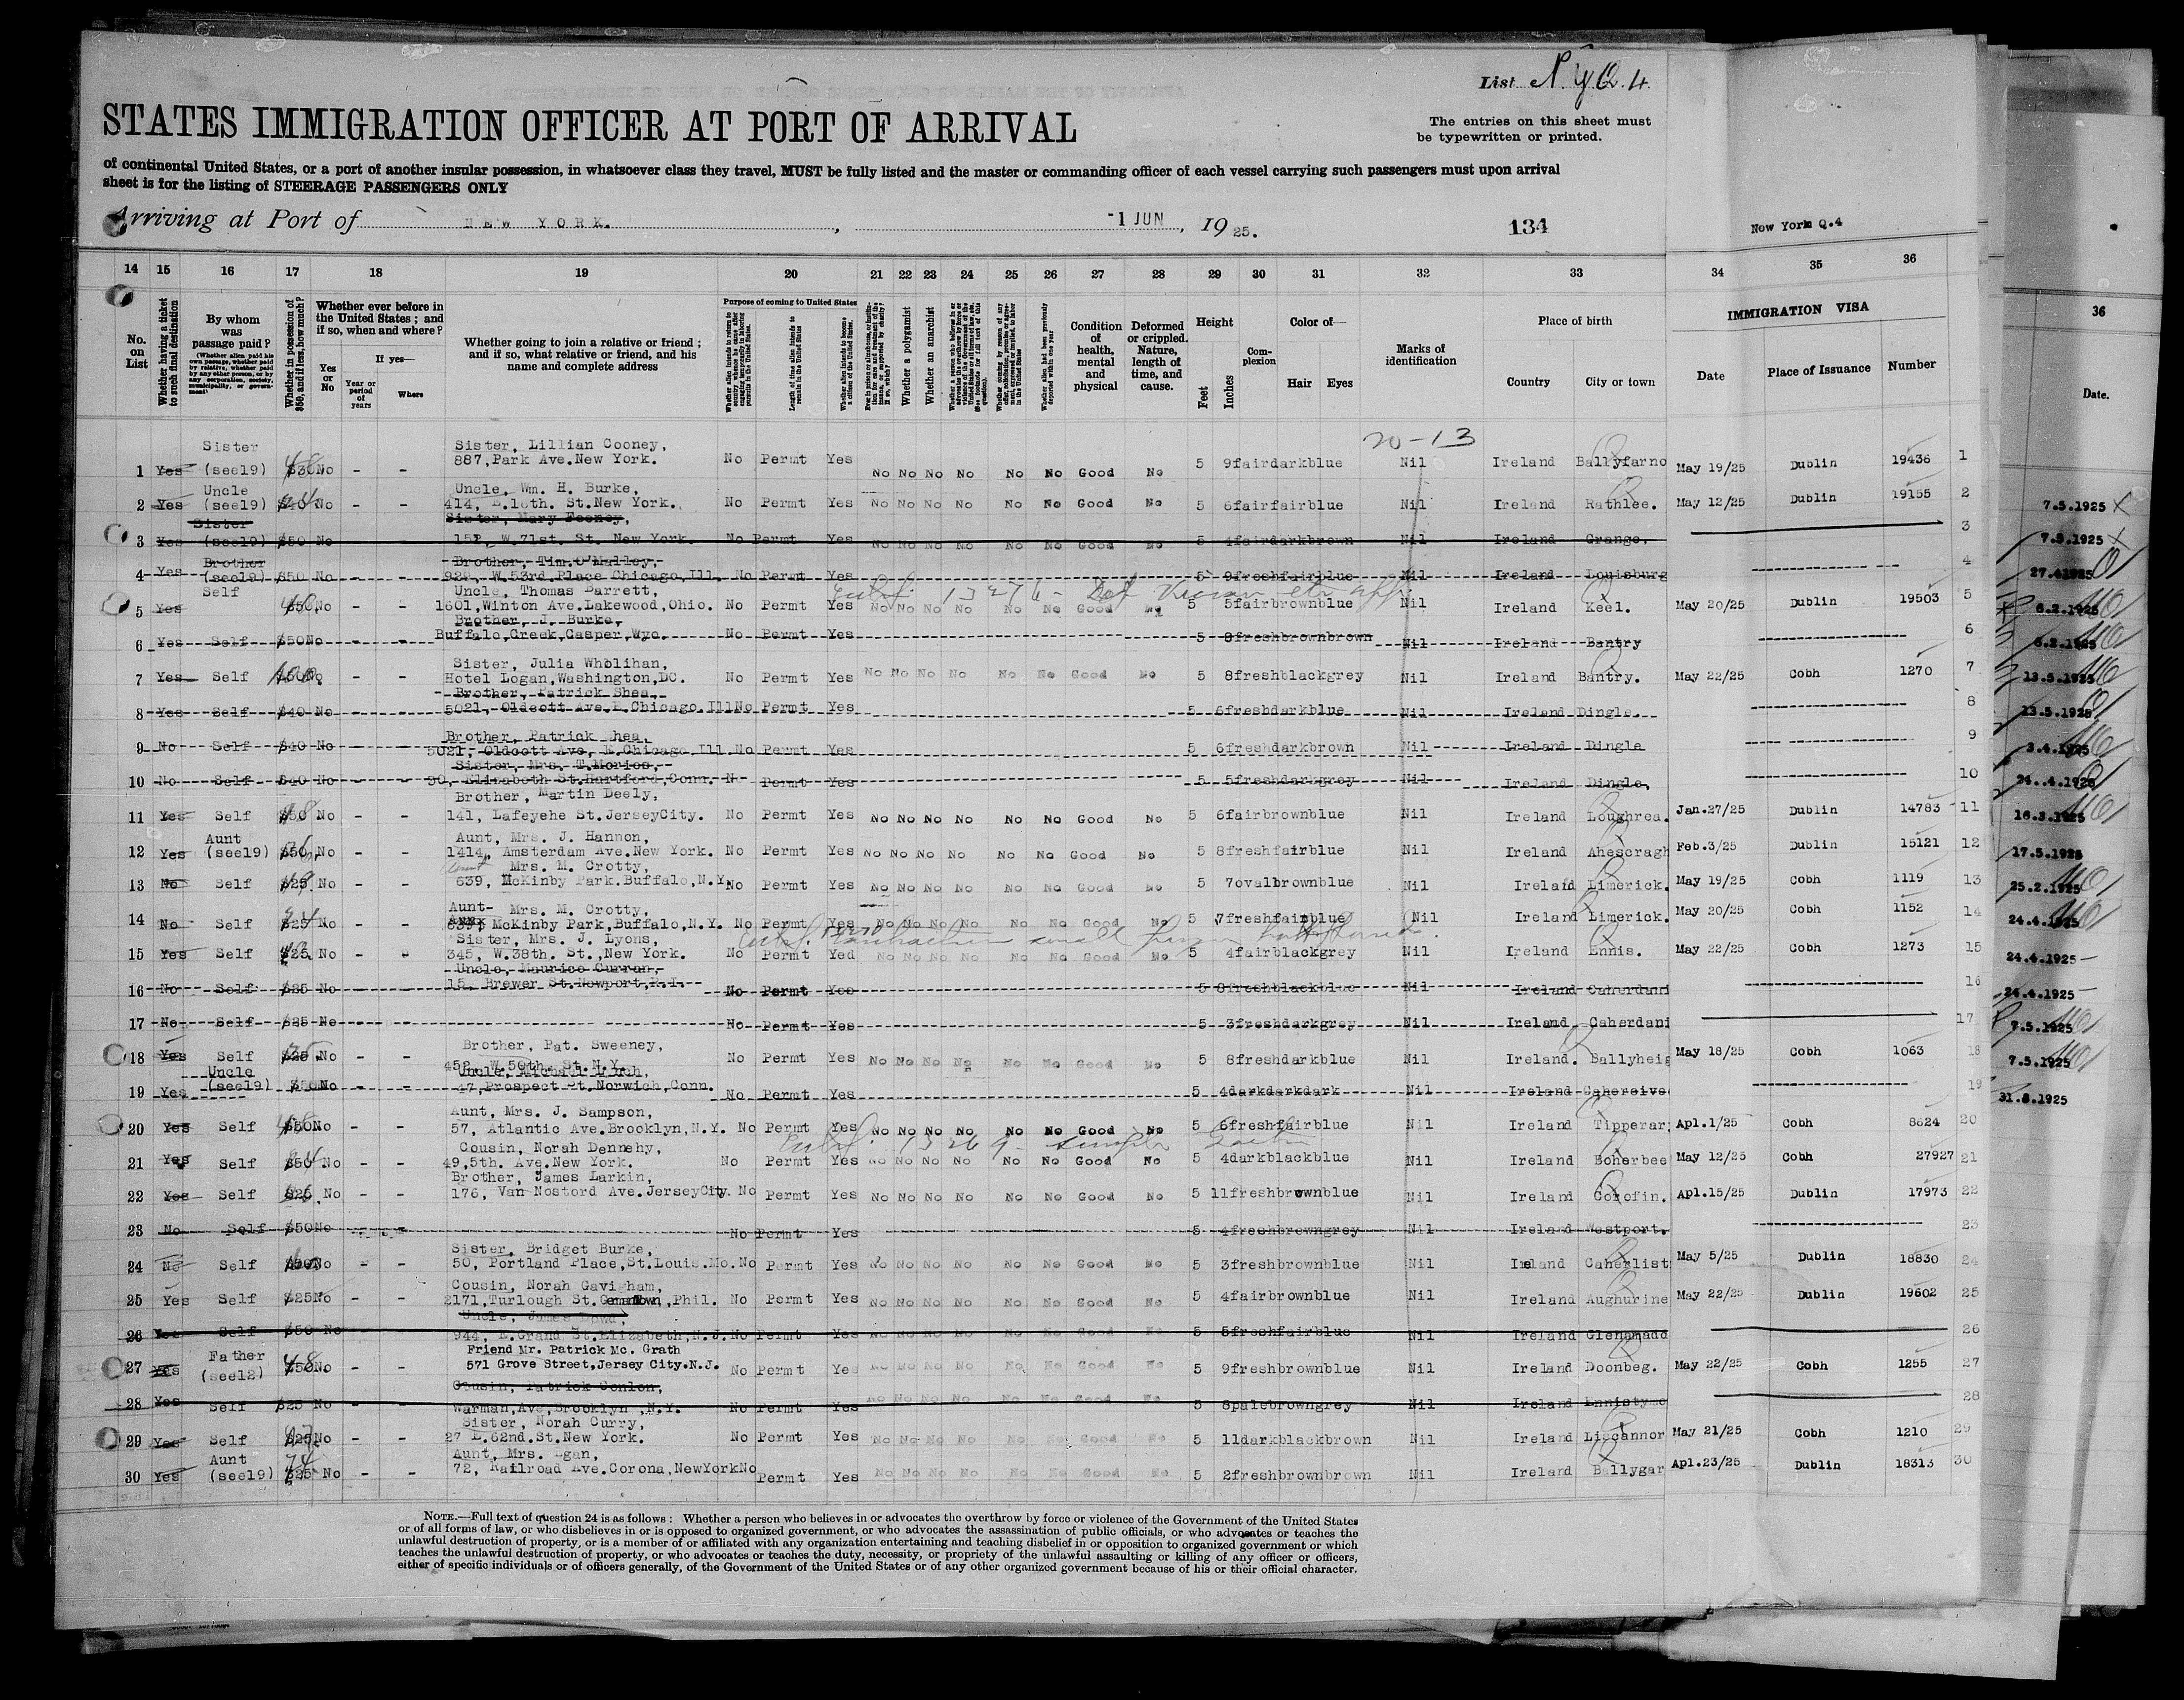 List N.Y.Q.4
STATES IMMIGRATION OFFICER AT PORT OF ARRIVAL
The entries on this sheet must
be typewritten or printed.
of continental United States, or a port of another insular possession, in whatsoever class they travel, MUST be fully listed and the master or commanding officer of each vessel carrying such passengers must upon arrival
sheet is for the listing of STEERAGE PASSENGERS ONLY
Arriving at Port of NEW YORK. , -1 JUN , 19 25.
134
New York Q.4
14 15 16 17 18 19 20 21 22 23 24 25 26 27 28 29 30 31 32 33 34 35 36
No. on List
Whether having a ticket to such final destination
By whom was passage paid?
Whether in possession of $50, and if less, how much?
Whether ever before in the United States; and if so, when and where?
Yes or No
If yes—
Year or period of years
Where
Whether going to join a relative or friend; and if so, what relative or friend, and his name and complete address
Purpose of coming to United States
Whether a polygamist
Whether an anarchist
Condition of health, mental and physical
Deformed or crippled. Nature, length of time, and cause.
Height
Feet Inches
Complexion
Color of—
Hair Eyes
Marks of identification
Place of birth
Country City or town
IMMIGRATION VISA
Date Place of Issuance Number
36
Date.
20-13
1 Yes Sister (see19) $30 No - - Sister, Lillian Cooney,
887,Park Ave.New York. No Permt Yes No No No No No No Good No 5 9fairdarkblue Nil Ireland Ballyfarno May 19/25 Dublin 19436 1
2 Yes Uncle (see19) $40 No - - Uncle, Wm. H. Burke,
414, E.16th. St.New York. No Permt Yes No No No No No No Good No 5 6fairfairblue Nil Ireland Rathlee. May 12/25 Dublin 19155 2
3 Yes Sister (see19) $50 No Sister, Mary Feeney,
152, W.71st. St. New York. No Permt Yes No No No No No No Good No 5 4fairdarkbrown Nil Ireland Grange. 3
4 Yes Brother (see19) $50 No - - Brother, Tim.O'Malley,
929, W.53rd.Place Chicago,Ill. No Permt Yes 5 9freshfairblue Nil Ireland Louisburg 4
5 Yes Self $50 No - - Uncle, Thomas Barrett,
1601,Winton Ave.Lakewood,Ohio. No Permt Yes No No No No No No Good No 5 5fairbrownblue Nil Ireland Keel. May 20/25 Dublin 19503 5
6 Yes Self $50 No - - Brother, J. Burke,
Buffalo,Creek,Casper,Wyo. No Permt Yes 5 8freshbrownbrown Nil Ireland Bantry 6
7 Yes Self No - - Sister, Julia Wholihan,
Hotel Logan,Washington,DC. No Permt Yes No No No No No No Good No 5 8freshblackgrey Nil Ireland Bantry. May 22/25 Cobh 1270 7
8 Yes Self $40 No - - Brother, Patrick Shea,
5021, Oldcott Ave.E.Chicago.Ill No Permt Yes 5 6freshdarkblue Nil Ireland Dingle. 8
9 No Self $40 No - - Brother, Patrick Shea,
5021, Oldcott Ave, E.Chicago Ill No Permt Yes 5 6freshdarkbrown Nil Ireland Dingle 9
10 No Self $40 No - - Sister, Mrs. T.Morios,
90, Elizabeth St.Hartford,Conn. N- Permt Yes 5 5freshdarkgrey Nil Ireland Dingle, 10
11 Yes Self $50 No - - Brother, Martin Deely,
141, Lafeyehe St.JerseyCity. No Permt Yes No No No No No No Good No 5 6fairbrownblue Nil Ireland Loughrea. Jan.27/25 Dublin 14783 11
12 Yes Aunt (see19) $50 No - - Aunt, Mrs. J. Hannon,
1414, Amsterdam Ave.New York. No Permt Yes No No No No No No Good No 5 8freshfairblue Nil Ireland Ahescragh Feb.3/25 Dublin 15121 12
13 No Self $25 No - - Aunt Mrs. M. Crotty,
639, McKinby Park.Buffalo,N.Y. No Permt Yes No No No No No No Good No 5 7ovalbrownblue Nil Ireland Limerick. May 19/25 Cobh 1119 13
14 No Self $25 No - - Aunt- Mrs. M. Crotty,
639, McKinby Park,Buffalo,N.Y. No Permt Yes No No No No No No Good No 5 7freshfairblue Nil Ireland Limerick. May 20/25 Cobh 1152 14
15 Yes Self $25 No - - Sister, Mrs. J. Lyons,
345, W.38th. St.,New York. No Permt Yed No No No No No No Good No 5 4fairblackgrey Nil Ireland Ennis. May 22/25 Cobh 1273 15
16 No Self $25 No - - Uncle, Maurice Curran,
15, Brewer St.Newport,R.I. No Permt Yes 5 8freshblackblue Nil Ireland Caherdani 16
17 No Self $25 No - - No Permt Yes 5 3freshdarkgrey Nil Ireland Caherdani 17
18 Yes Self $25 No - - Brother, Pat. Sweeney,
452, W.50th. St.N.Y. No Permt Yes No No No No No No Good No 5 8freshdarkblue Nil Ireland. Ballyheig May 18/25 Cobh 1063 18
19 Yes Uncle (see19) No - - Uncle, Michael Lynch,
47,Prospect St.Norwich,Conn. No Permt Yes 5 4darkdarkdark Nil Ireland Cahersive 19
20 Yes Self $50 No - - Aunt, Mrs. J. Sampson,
57, Atlantic Ave.Brooklyn,N.Y. No Permt Yes No No No No No No Good No 5 6freshfairblue Nil Ireland Tipperar Apl.1/25 Cobh 8824 20
21 Yes Self $50 No - - Cousin, Norah Dennehy,
49,5th. Ave.New York. No Permt Yes No No No No No No Good No 5 4darkblackblue Nil Ireland Boherbee May 12/25 Cobh 27927 21
22 Yes Self $25 No - - Brother, James Larkin,
176, Van Nostord Ave.JerseyCity No Permt Yes No No No No No No Good No 5 11freshbrownblue Nil Ireland Corofin. Apl.15/25 Dublin 17973 22
23 No Self $50 No - - No Permt Yes 5 4freshbrowngrey Nil Ireland Westport. 23
24 No Self $50 No - - Sister, Bridget Burke,
50, Portland Place,St.Louis.Mo. No Permt Yes No No No No No No Good No 5 3freshbrownblue Nil Ireland Caherlist May 5/25 Dublin 18830 24
25 Yes Self $25 No - - Cousin, Norah Gavigham,
2171,Turlough St. ,Phil. No Permt Yes No No No No No No Good No 5 4fairbrownblue Nil Ireland Aughurine May 22/25 Dublin 19602 25
26 Yes Self $50 No - Uncle, James Dowd,
944, E.Grand St.Elizabeth,N.J. No Permt Yes No No No No No No Good No 5 5freshfairblue Nil Ireland Glenamadd 26
27 Yes Father (see12) $50 No - - Friend Mr. Patrick Mc. Grath
571 Grove Street,Jersey City.N.J. No Permt Yes No No No No No No Good No 5 9freshbrownblue Nil Ireland Doonbeg. May 22/25 Cobh 1255 27
28 Yes Self $25 No - - Cousin, Patrick Conlon,
Warman,Ave,Brooklyn ,N.Y. No Permt Yes No No No No No No Good No 5 8palebrowngrey Nil Ireland Ennistymo 28
29 Yes Self $25 No - - Sister, Norah Curry,
27 E.62nd.St.New York. No Permt Yes No No No No No No Good No 5 11darkblackbrown Nil Ireland Liscannor May 21/25 Cobh 1210 29
30 Yes Aunt (see19) $25 No - - Aunt, Mrs. Egan,
72, Railroad Ave.Corona,NewYork No Permt Yes No No No No No No Good No 5 2freshbrownbrown Nil Ireland Ballygar Apl.23/25 Dublin 18313 30
7.5.1925
7.5.1925
27.4.1925
6.2.1925
6.2.1925
13.5.1925
13.5.1925
3.4.1925
24.4.1925
16.3.1925
17.5.1925
25.2.1925
24.4.1925
24.4.1925
24.4.1925
7.5.1925
7.5.1925
31.8.1925
NOTE.—Full text of question 24 is as follows: Whether a person who believes in or advocates the overthrow by force or violence of the Government of the United States
or of all forms of law, or who disbelieves in or is opposed to organized government, or who advocates the assassination of public officials, or who advocates or teaches the
unlawful destruction of property, or is a member of or affiliated with any organization entertaining and teaching disbelief in or opposition to organized government or which
teaches the unlawful destruction of property, or who advocates or teaches the duty, necessity, or propriety of the unlawful assaulting or killing of any officer or officers,
either of specific individuals or of officers generally, of the Government of the United States or of any other organized government because of his or their official character.